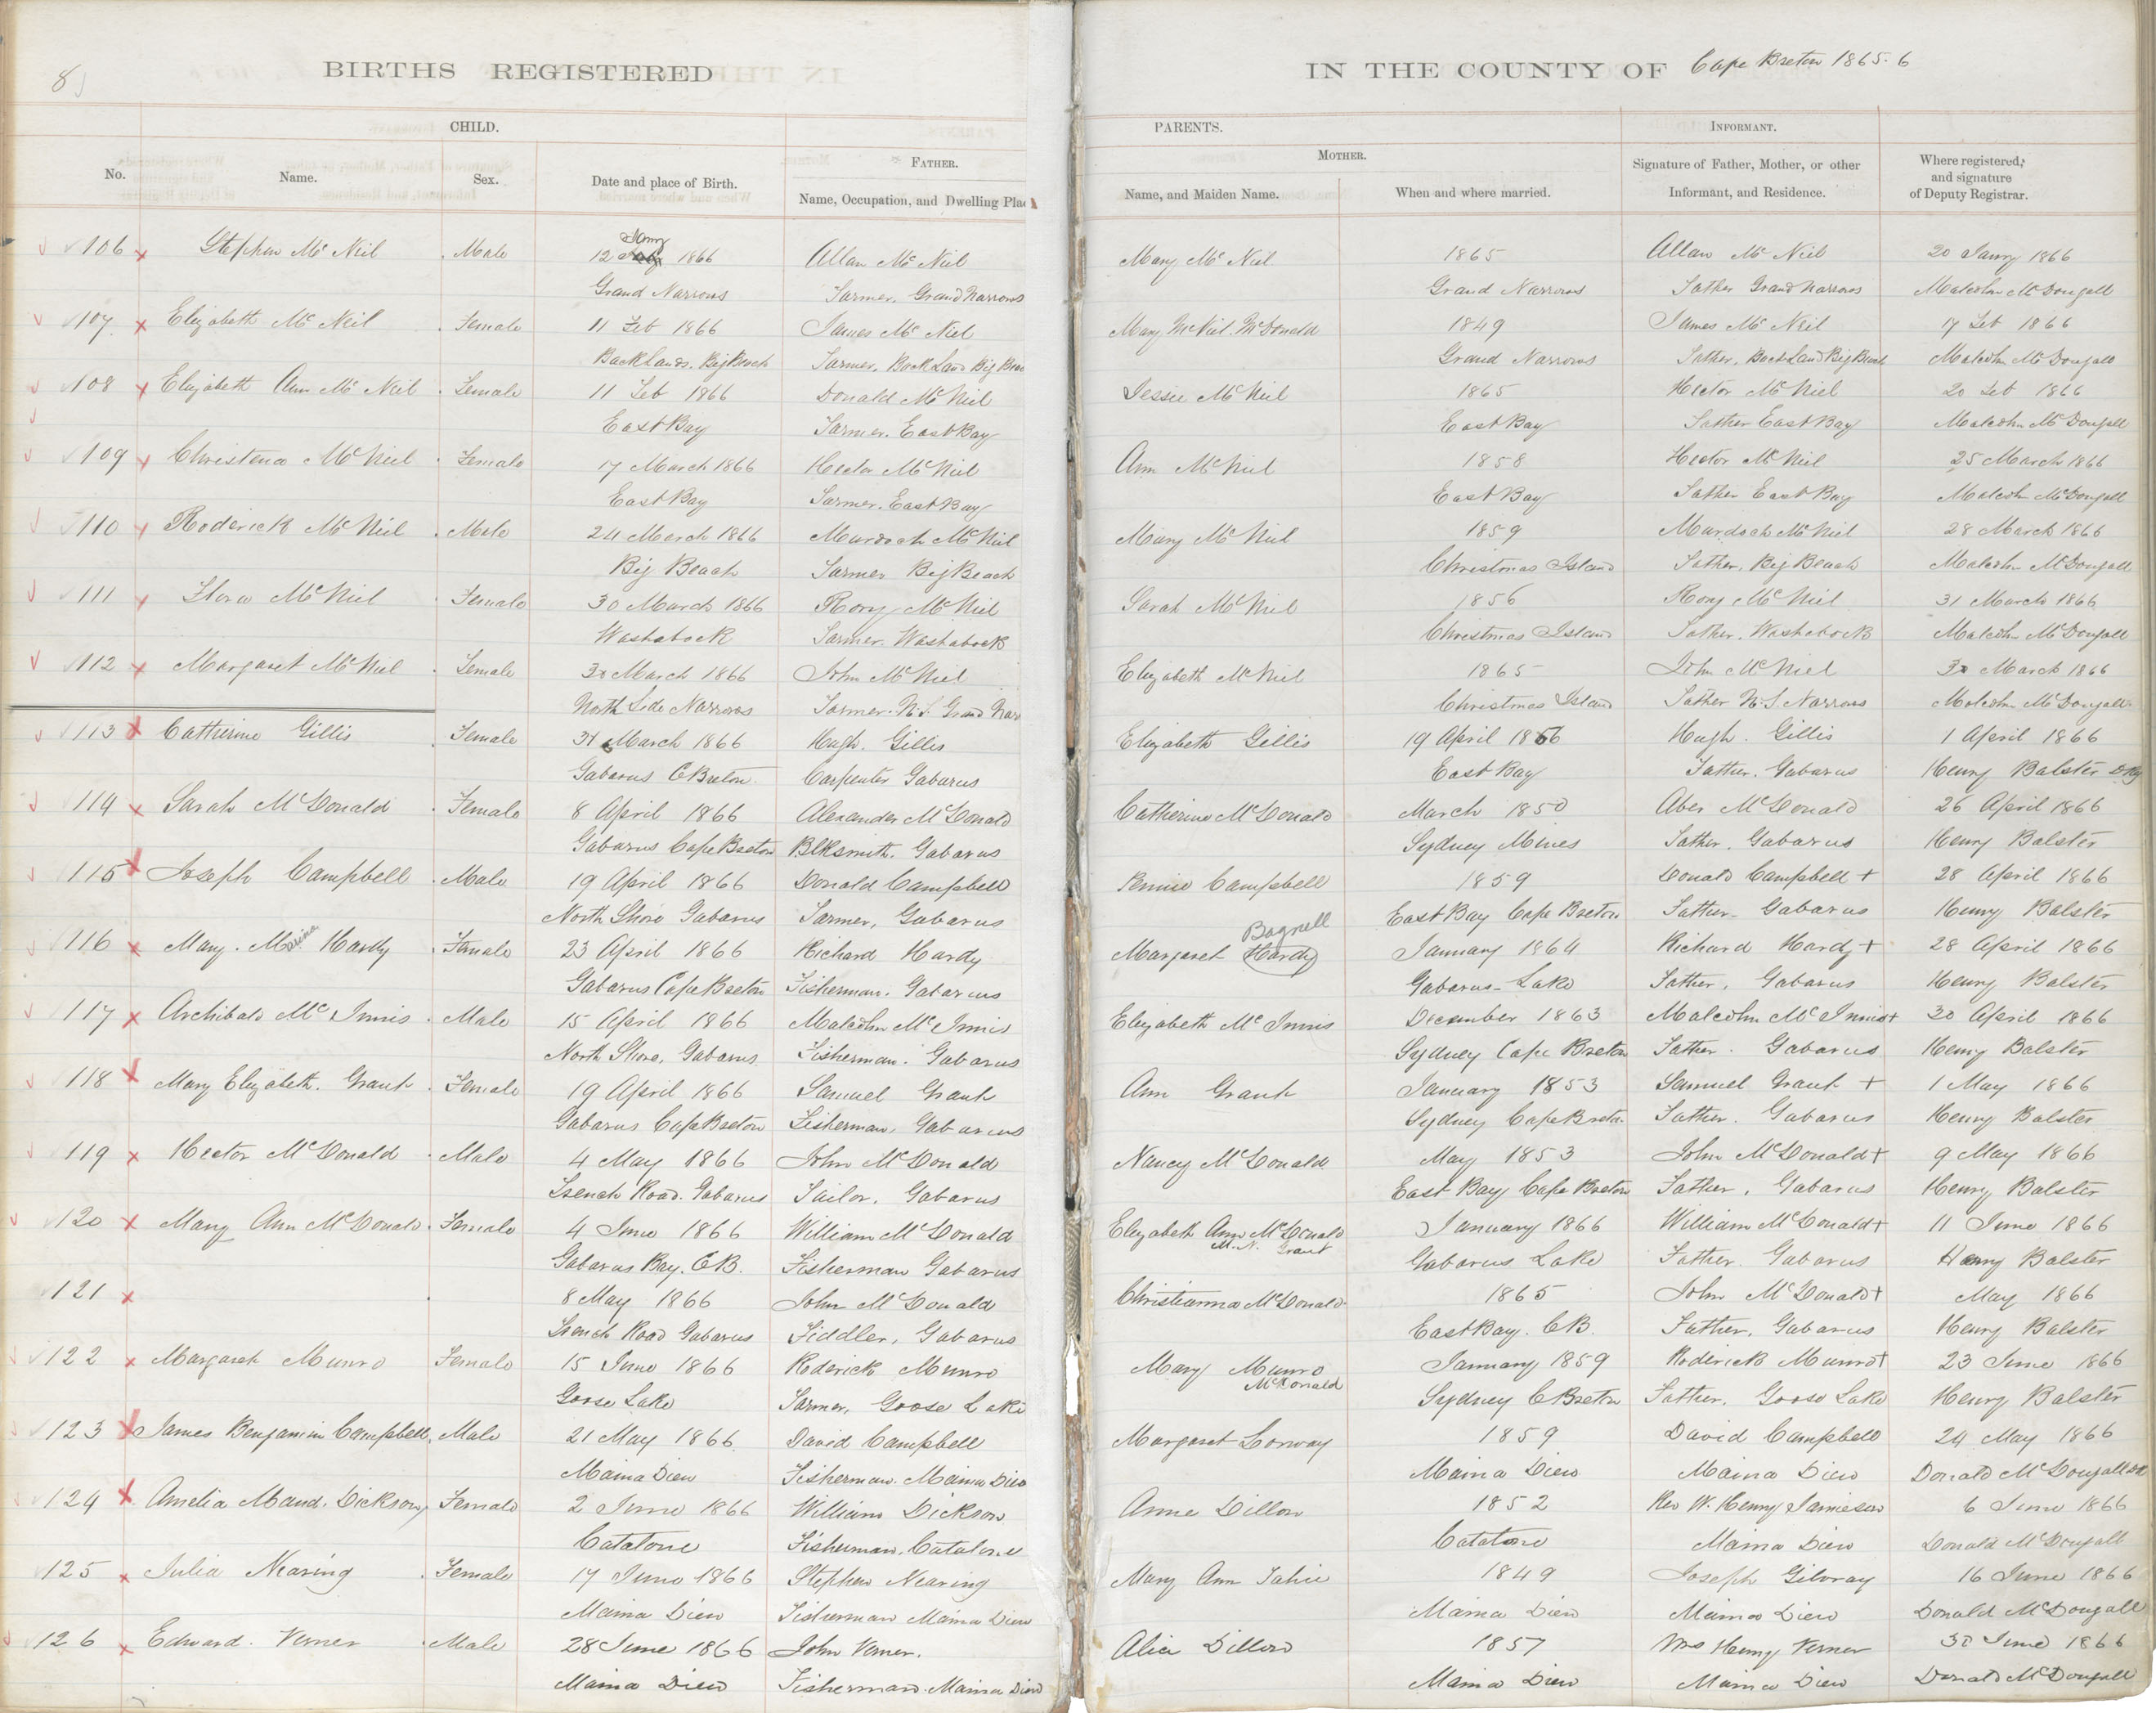 8
BIRTHS REGISTERED
IN THE COUNTY OF Cape Breton 1865-6
CHILD.
PARENTS.
INFORMANT.
FATHER.
MOTHER.
No. Name. Sex. Date and place of Birth. Name, Occupation, and Dwelling Plac
Name, and Maiden Name. When and where married. Signature of Father, Mother, or other Informant, and Residence. Where registered, and signature of Deputy Registrar.
106 Stephen McNeil Male 12 Jany 1866 Allan McNeil Mary McNeil 1865 Allan McNeil 20 Jany 1866
Grand Narrows Farmer. Grand Narrows Grand Narrows Father Grand Narrows Malcolm McDougall
107 Elizabeth McNeil Female 11 Feb 1866 James McNeil Mary McNeil. McDonald 1849 James McNeil 17 Feb 1866
Back Lands. Big Beach Farmer. Back Land Big Beac Grand Narrows Father. Back Land Big Beach Malcolm McDougall
108 Elizabeth Ann McNeil Female 11 Feb 1866 Donald McNeil Jessie McNeil 1865 Hector McNeil 20 Feb 1866
East Bay Farmer. East Bay East Bay Father East Bay Malcolm McDougall
109 Christena McNeil Female 17 March 1866 Hector McNeil Ann McNeil 1858 Hector McNeil 25 March 1866
East Bay Farmer. East Bay East Bay Father East Bay Malcolm McDougall
110 Roderick McNeil Male 24 March 1866 Murdoch McNeil Mary McNeil 1859 Murdoch McNeil 28 March 1866
Big Beach Farmer Big Beach Christmas Island Father. Big Beach Malcolm McDougall
111 Flora McNeil Female 30 March 1866 Rory McNeil Sarah McNeil 1856 Rory McNeil 31 March 1866
Washaback Farmer. Washaback Christmas Island Father. Washaback Malcolm McDougall
112 Margaret McNeil Female 30 March 1866 John McNeil Elizabeth McNeil 1865 John McNeil 30 March 1866
North Side Narrows Farmer. N.S. Grand Narr Christmas Island Father N.S. Narrows Malcolm McDougall
113 Catherine Gillis Female 31 March 1866 Hugh. Gillis Elizabeth Gillis 19 April 1856 Hugh. Gillis 1 April 1866
Gabarus C Breton. Carpenter Gabarus East Bay Father. Gabarus Henry Balster
114 Sarah McDonald Female 8 April 1866 Alexander McDonald Catherine McDonald March 1850 McDonald 26 April 1866
Gabarus Cape Breton Blksmith. Gabarus Sydney Mines Father. Gabarus Henry Balster
115 Joseph Campbell Male 19 April 1866 Donald Campbell Campbell 1859 Donald Campbell + 28 April 1866
North Shore Gabarus Farmer, Gabarus East Bay Cape Breton Father. Gabarus Henry Balster
116 Mary. Hardy Female 23 April 1866 Richard Hardy Margaret Hardy Bagnell January 1864 Richard Hardy + 28 April 1866
Gabarus Cape Breton Fisherman. Gabarus Gabarus Lake Father. Gabarus Henry Balster
117 Archibald McInnis Male 15 April 1866 Malcolm McInnis Elizabeth McInnis December 1863 Malcolm McInnis + 30 April 1866
North Shore, Gabarus. Fisherman. Gabarus Sydney Cape Breton Father. Gabarus Henry Balster
118 Mary Elizabeth. Grant Female 19 April 1866 Samuel Grant Ann Grant January 1853 Samuel Grant + 1 May 1866
Gabarus Cape Breton Fisherman, Gabarus Sydney Cape Breton Father. Gabarus Henry Balster
119 Hector McDonald Male 4 May 1866 John McDonald Nancy McDonald May 1853 John McDonald + 9 May 1866
French Road. Gabarus Tailor. Gabarus East Bay Cape Breton Father. Gabarus Henry Balster
120 Mary Ann McDonald Female 4 June 1866 William McDonald Elizabeth Ann McDonald M.N. Grant January 1866 William McDonald + 11 June 1866
Gabarus Bay. C.B. Fisherman Gabarus Gabarus Lake Father. Gabarus Henry Balster
121 8 May 1866 John McDonald Christianna McDonald 1865 John McDonald + May 1866
French Road Gabarus Fiddler, Gabarus East Bay. C.B. Father, Gabarus Henry Balster
122 Margaret Munro Female 15 June 1866 Roderick Munro Mary Munro McDonald January 1859 Roderick Munro + 23 June 1866
Goose Lake Farmer, Goose Lake Sydney C Breton Father. Goose Lake Henry Balster
123 James Benjamin Campbell Male 21 May 1866 David Campbell Margaret Lorway 1859 David Campbell 24 May 1866
Maina Dieu Fisherman. Maina Dieu Maina Dieu Maina Dieu Donald McDougall
124 Amelia Maud. Dickson Female 2 June 1866 William Dickson Anne Dillon 1852 Rev W. Henry Jamieson 6 June 1866
Catalone Fisherman. Catalone Catalone Maina Dieu Donald McDougall
125 Julia Nearing Female 17 June 1866 Stephen Nearing Mary Ann Tahie 1849 Joseph Gilvray 16 June 1866
Maina Dieu Fisherman Maina Dieu Maina Dieu Maina Dieu Donald McDougall
126 Edward. Verner Male 28 June 1866 John Verner. Alice Dillon 1857 Mrs Henry Verner 30 June 1866
Maina Dieu Fisherman. Maina Dieu Maina Dieu Maina Dieu Donald McDougall